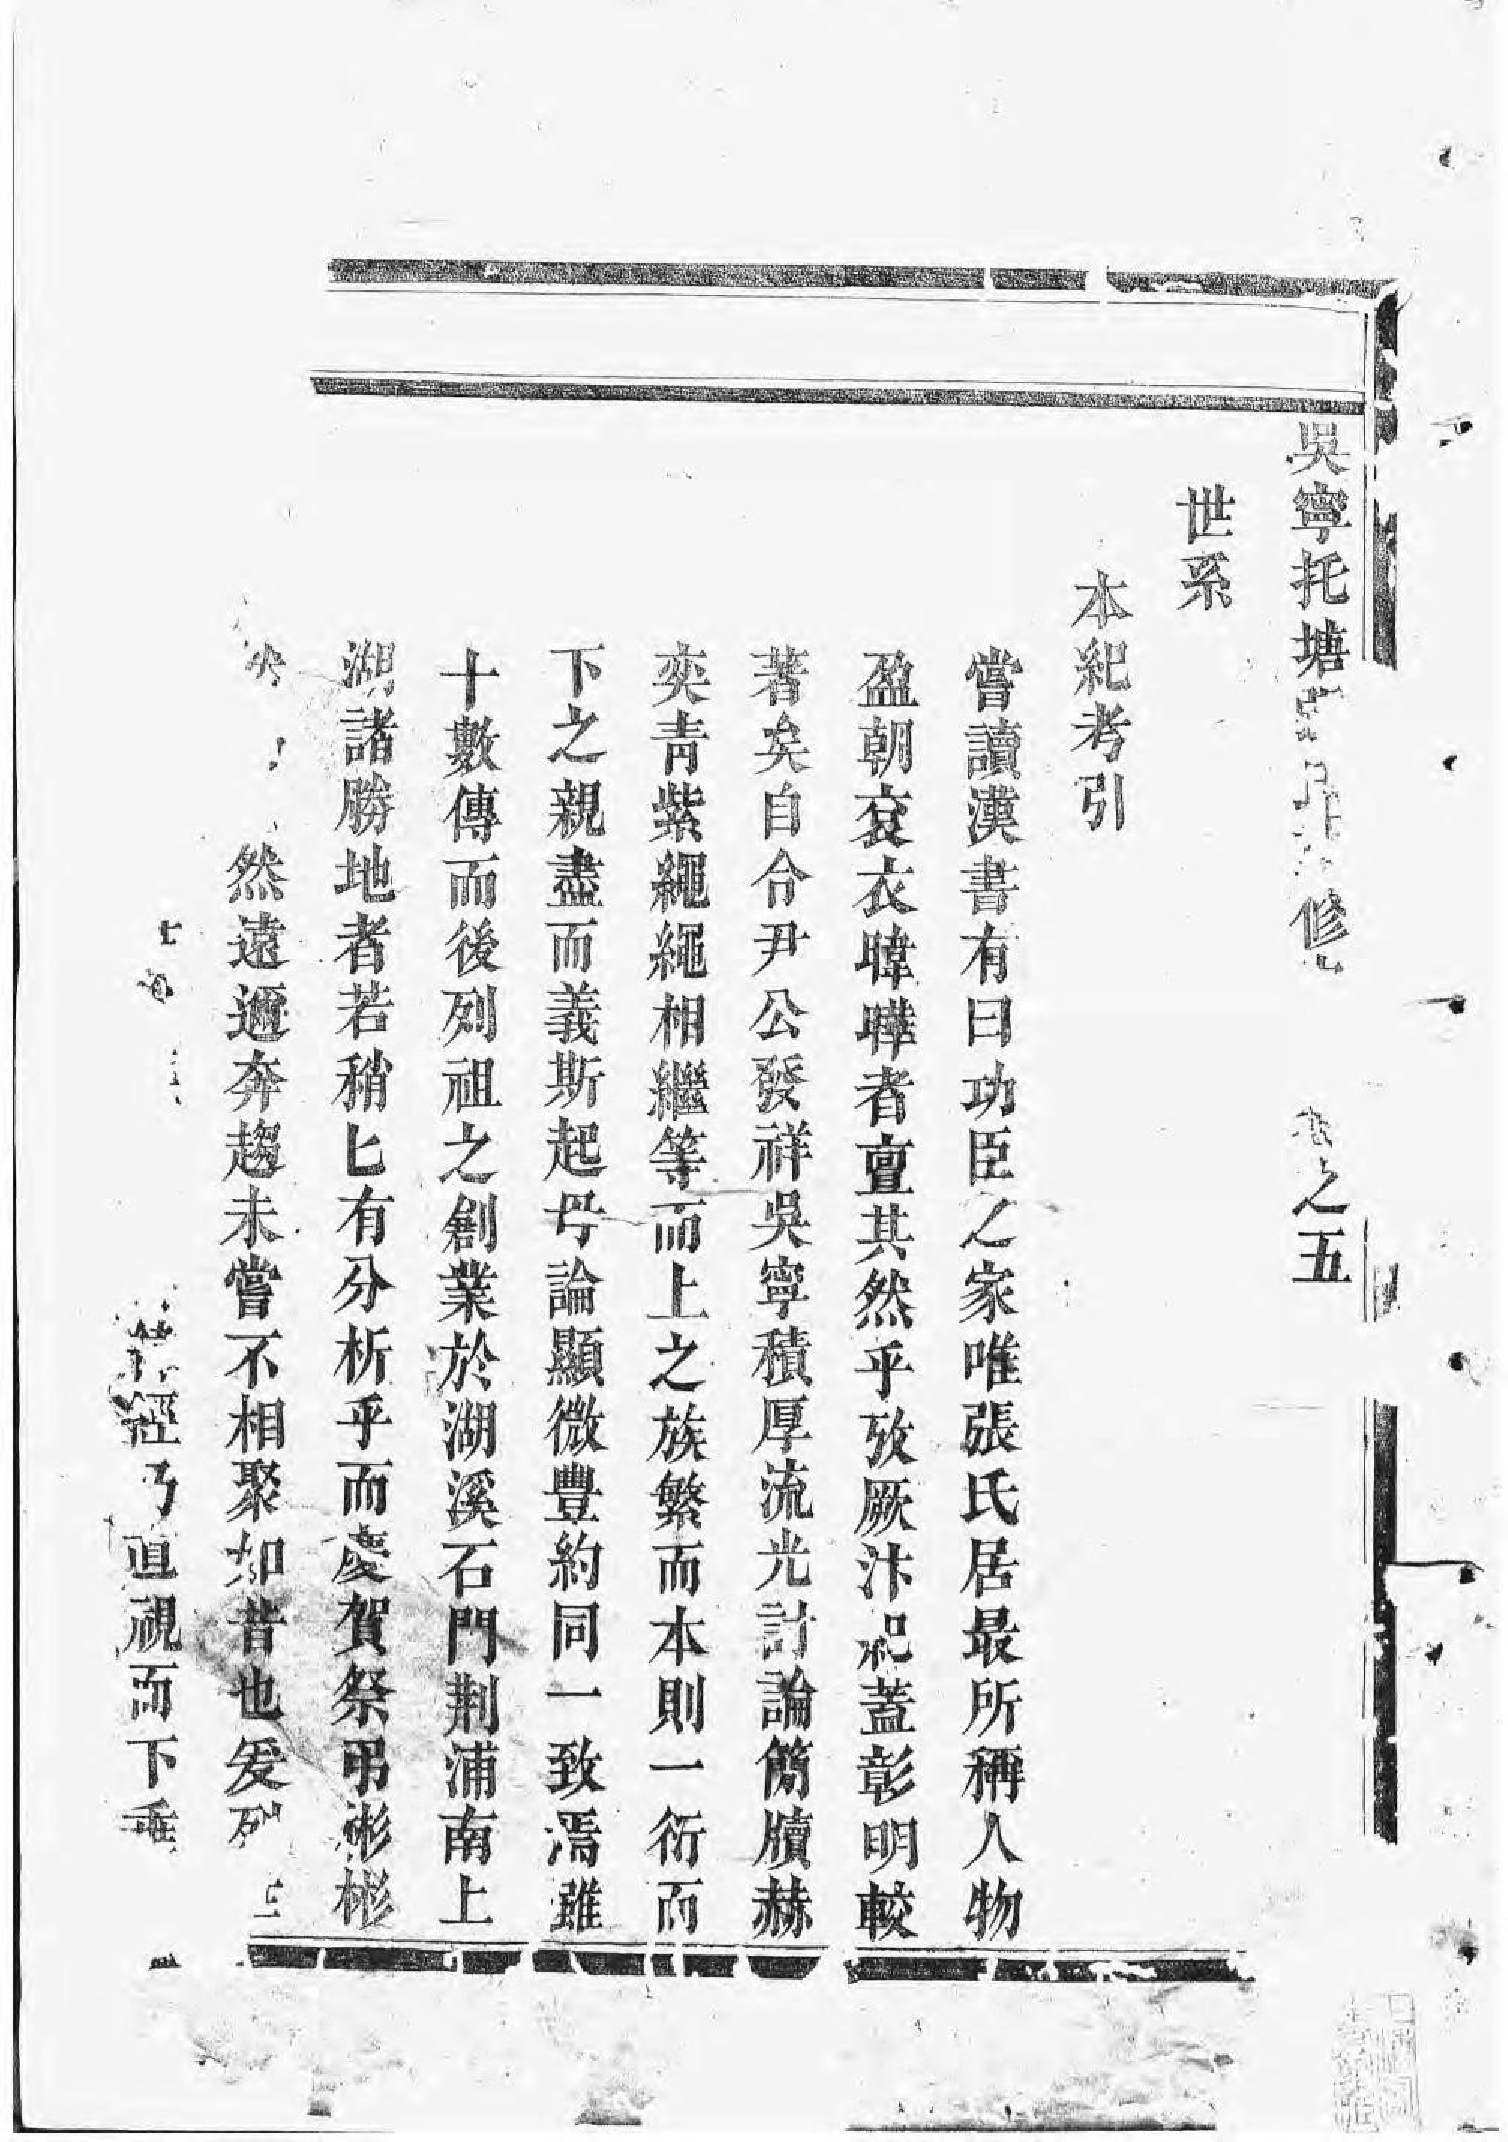 吳寧托塘修之五
世系
本紀考引
嘗讀漢書有曰功臣之家唯張氏居最所稱人物
盈朝袞衣暐曄者亶其然乎攷厥汴祀蓋彰明較
著矣自令尹公發祥吳寧積厚流光討論簡牘赫
奕青紫繩繩相繼等而上之族繁而本則一衍而
下之親盡而義斯起毋論顯微豐約同一致焉雖
十數傳而後列祖之創業於湖溪石門荆浦南上
湖諸勝地者若稍匕有分析乎而慶賀祭弔彬彬
然遠邇奔趨未嘗不相聚如昔也爰列
經乃直視而下垂